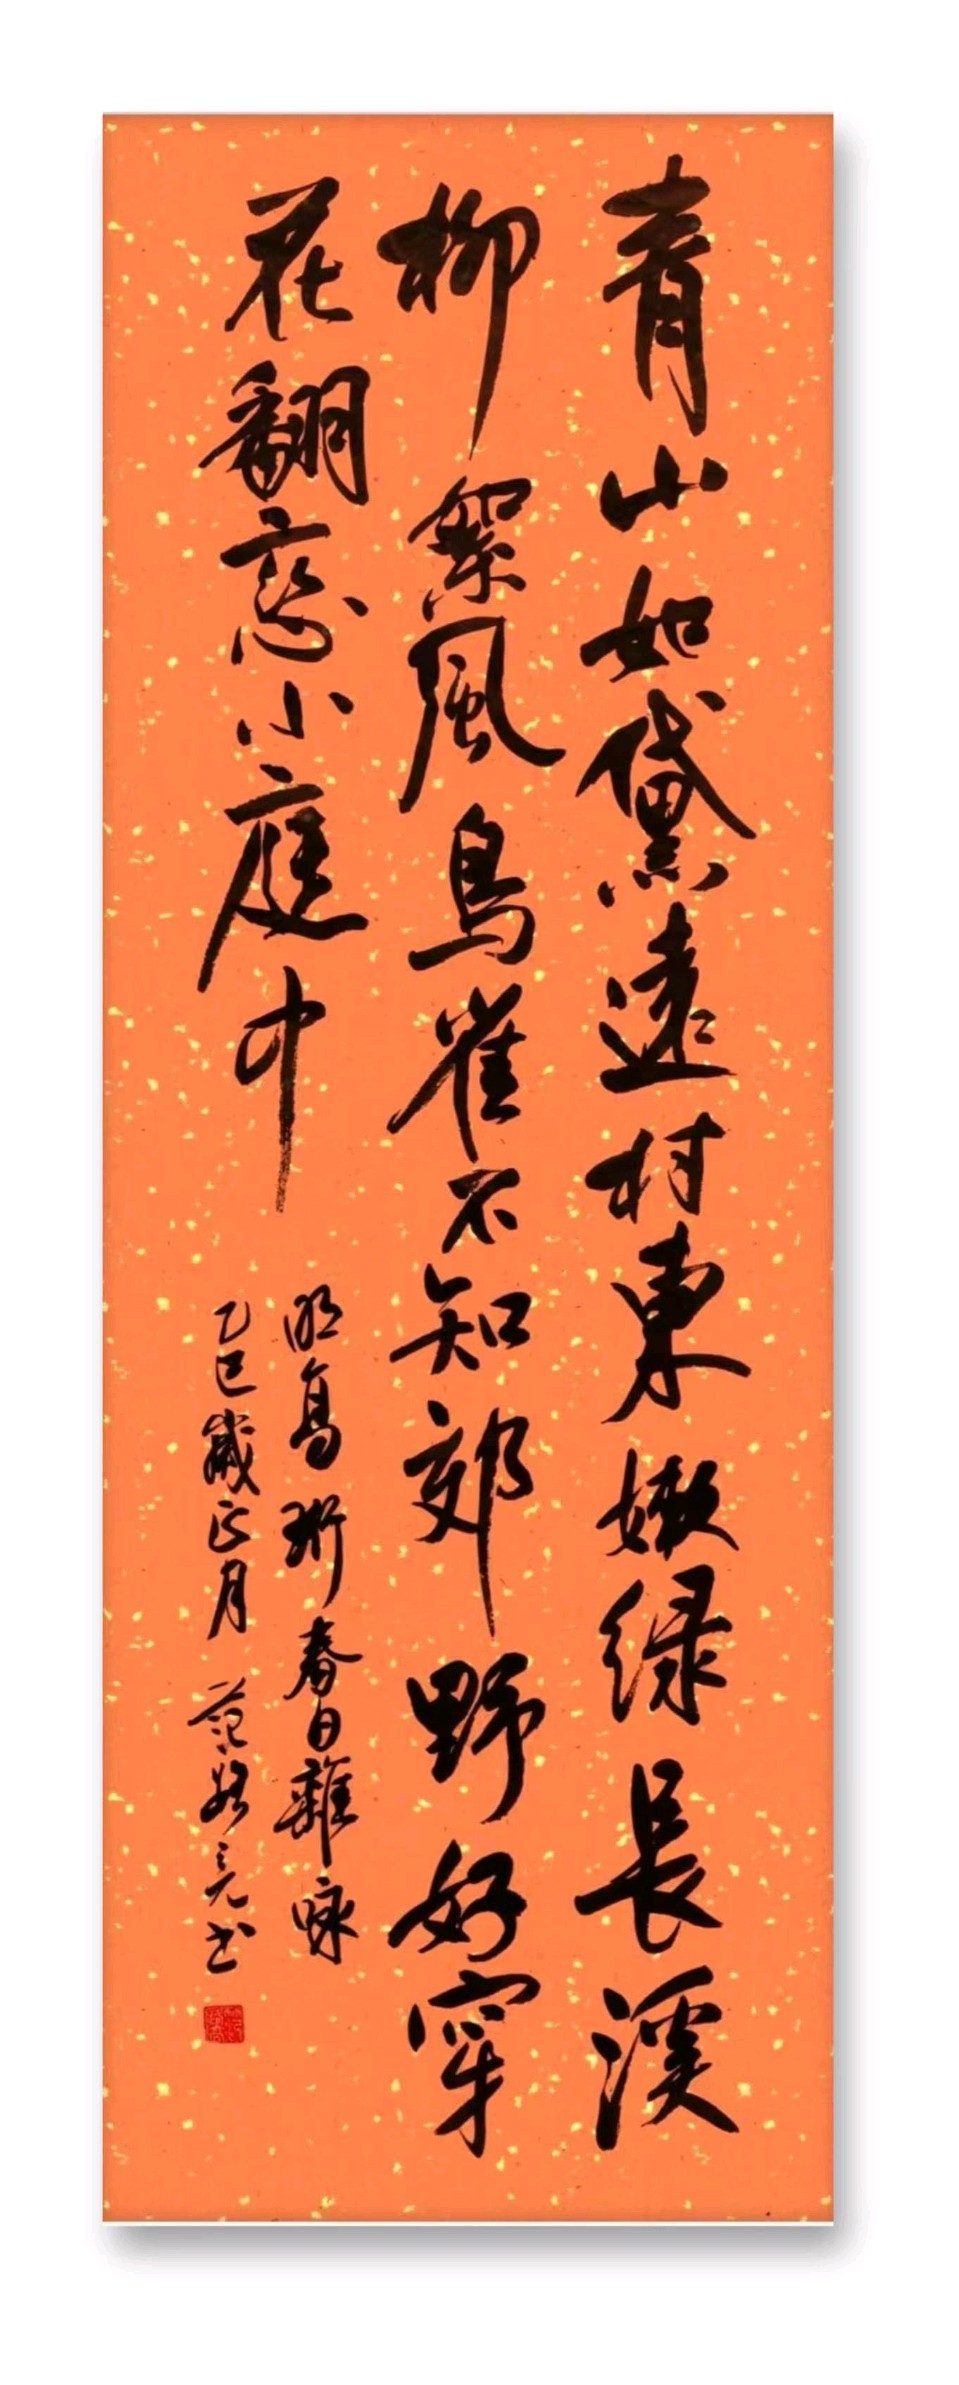 青山如黛遠村東嫩绿長溪
柳絮風鳥雀不知郊野好穿
花翻戀小庭中
明高珩春日雜咏
乙巳歲正月 范
书